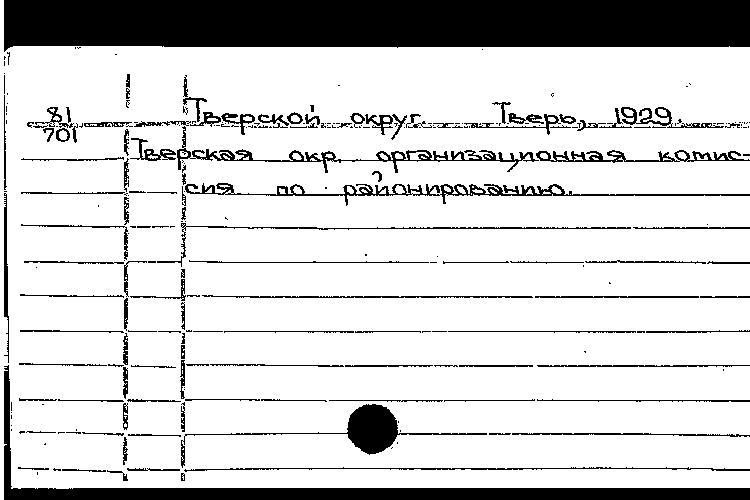 81 Тверской округ. Тверь, 1929.
701
Тверская окр. организационная комис-
сия по районированию.